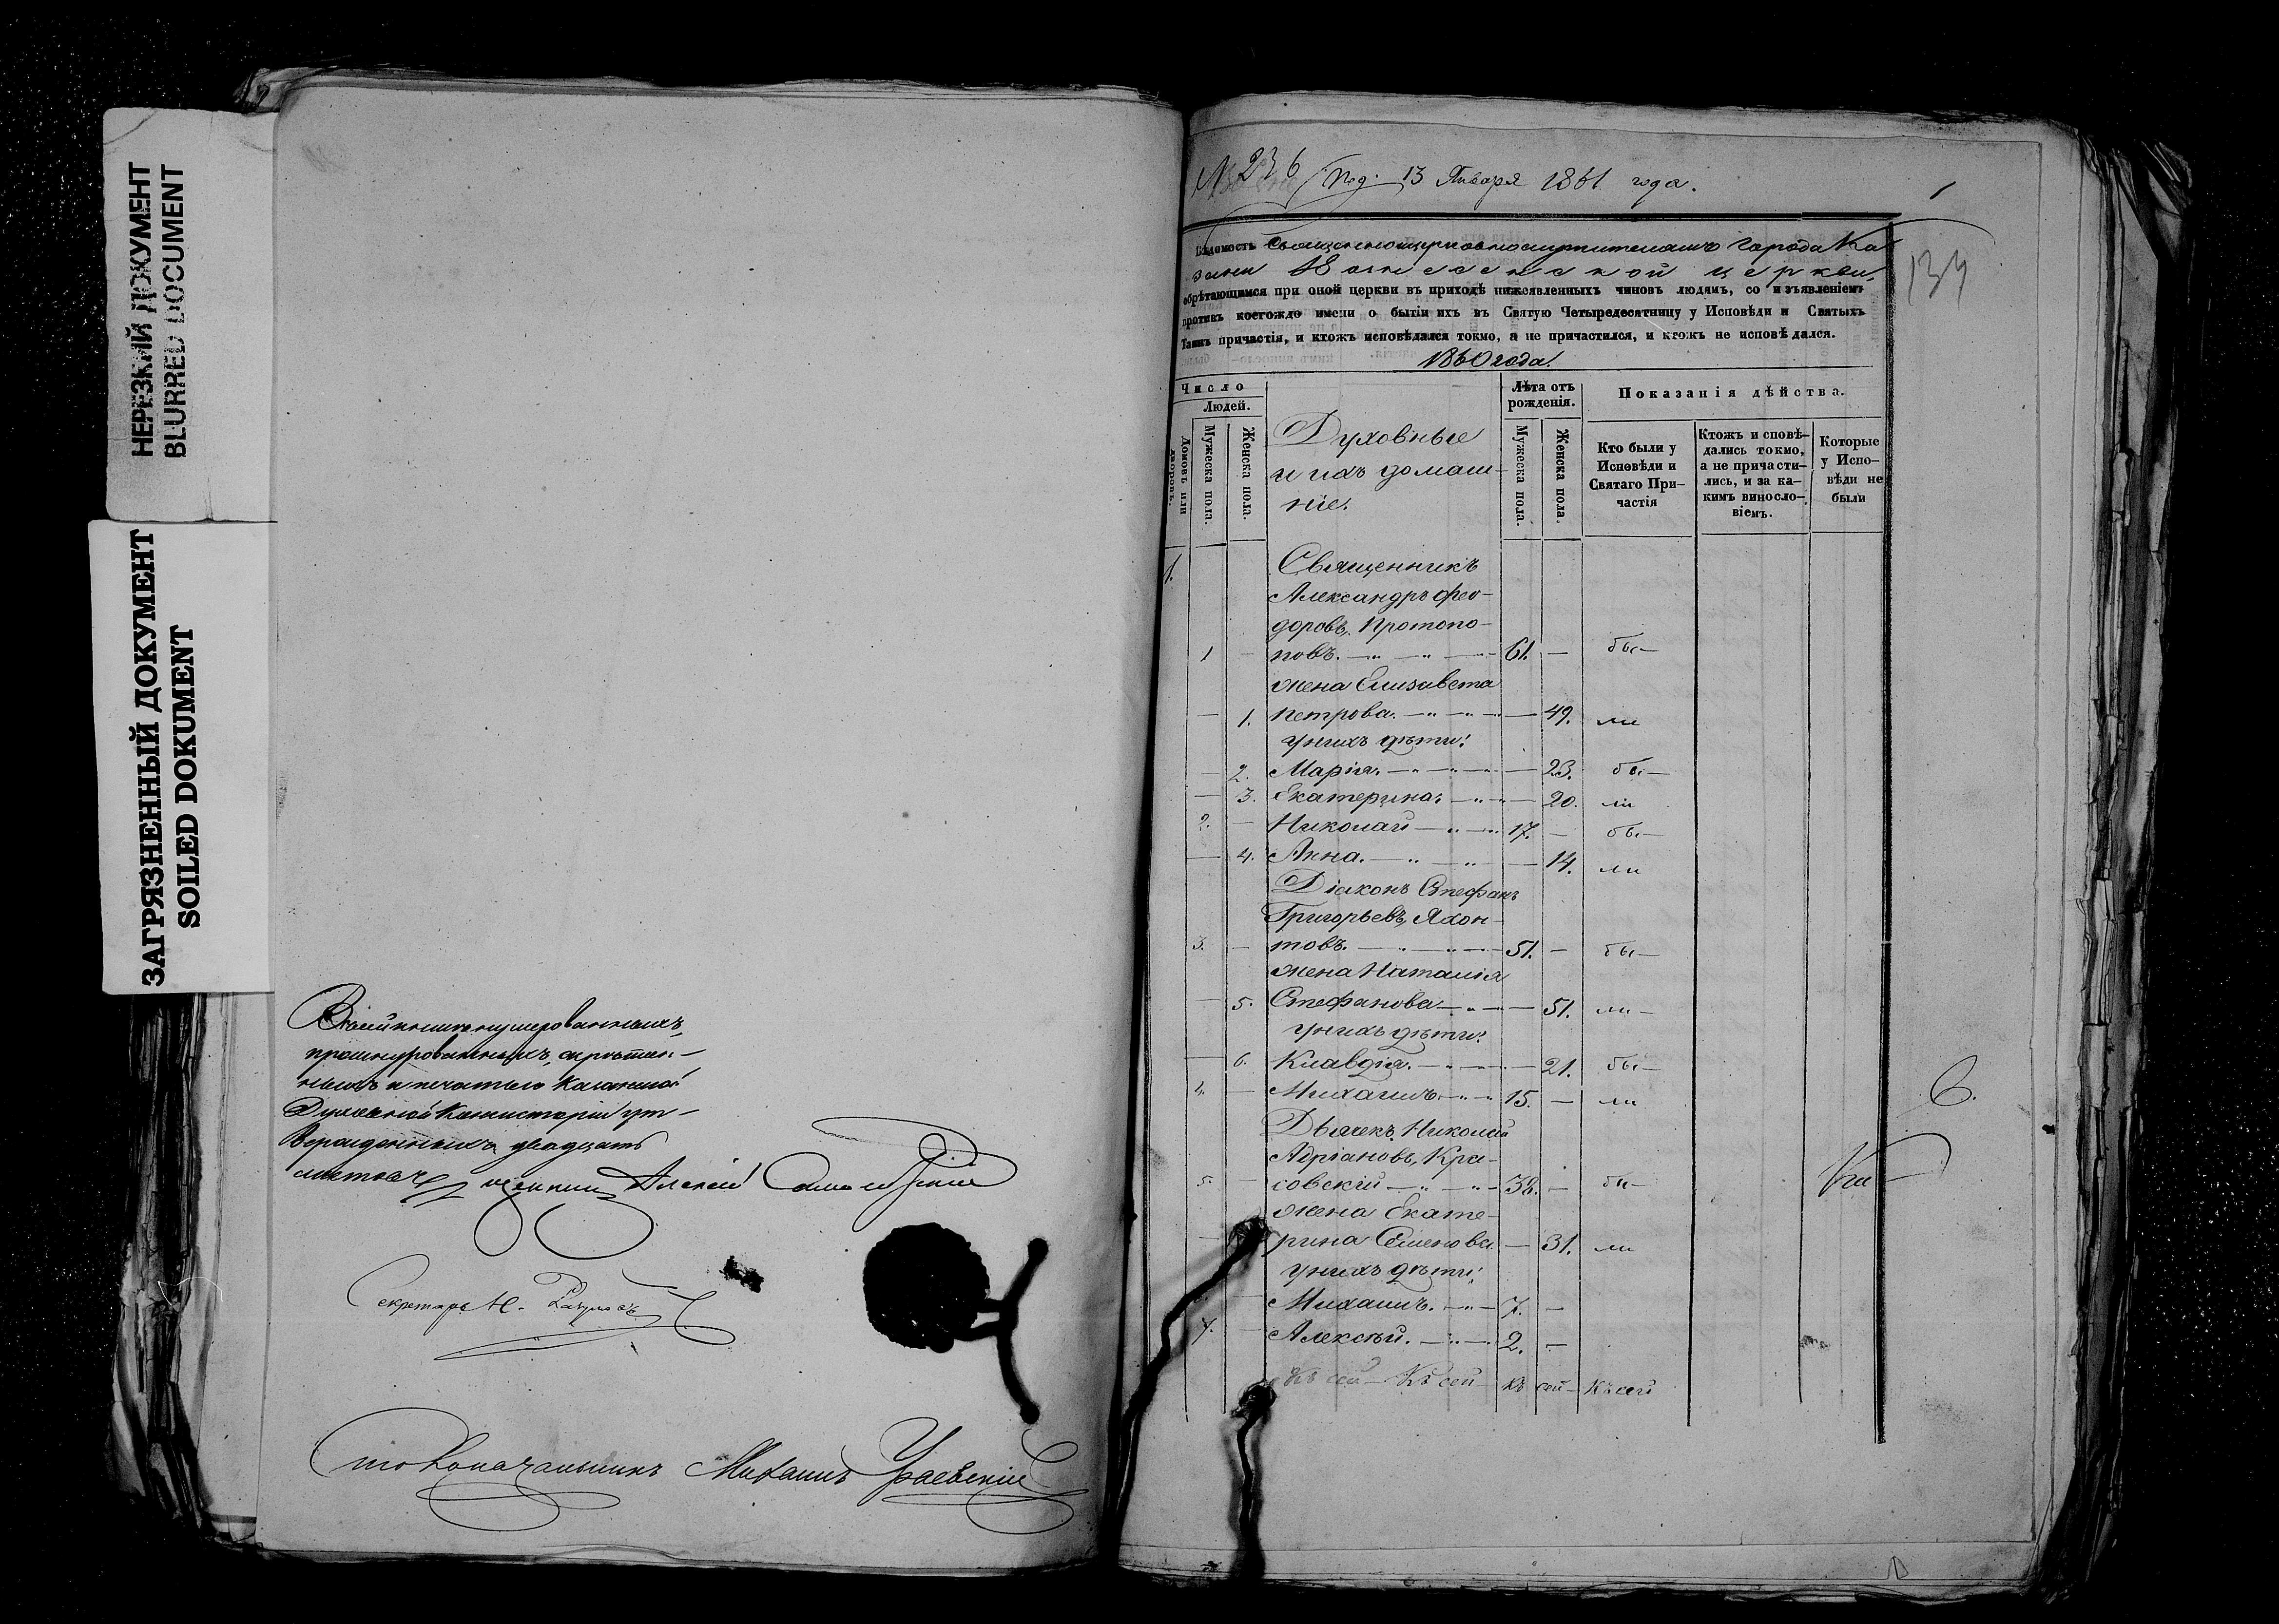 НЕРЕЗКИЙ ДОКУМЕНТ
BLURRED DOCUMENT
ЗАГРЯЗНЕННЫЙ ДОКУМЕНТ
SOILED DOKUMENT
нумерованныхъ,
прошнурованныхъ, скрѣплен-
ныхъ и печатью Казанской
Духовной Консисторіи ут-
вержденныхъ двадцать
листовъ
Алексій
Секретарь Н.
Столоначальникъ Михаилъ
№ 236 Под. 13 Января 1861 года.
1
134
Вѣдомость Священноцерковнослужителямъ города Ка-
зани Вознесенской церкви,
обрѣтающимся при оной церкви въ приходѣ нижеявленныхъ чиновъ людямъ, со изъявленіемъ
противъ коегождо имени о бытіи ихъ въ Святую Четыредесятницу у Исповѣди и Святыхъ
Таинъ причастія, и ктожъ исповѣдался токмо, а не причастился, и ктожъ не исповѣдался.
1860 года.
Число
Людей.
Домовъ или дворовъ.
Мужеска пола.
Женска пола.
Духовные
и ихъ домаш-
ніе.
Лѣта отъ рожденія.
Мужеска пола.
Женска пола.
Показанія дѣйства.
Кто были у Исповѣди и Святаго При-частія
Ктожъ исповѣ-дались токмо, а не причасти-лись, и за ка-кимъ винослo-віемъ.
Которые у Испо-вѣди не были
1.
Священникъ
Александръ Фео-
доровъ, Протопо-
1 — повъ. — 61. — бы—
жена Елисавета
— 1. Петрова. — — 49. ли
у нихъ дѣти:
— 2. Марія. — — 23. бы—
— 3. Екатерина. — — 20. ли
2. — Николай — 17. — бы—
— 4. Анна. — — 14. ли
Діаконъ Стефанъ
Григорьевъ, Яхон-
3. — товъ. — 51. — бы—
жена Наталія
— 5. Стефанова — — 51. ли—
у нихъ дѣти:
— 6. Клавдія. — — 21. бы—
4. — Михаилъ. — 15. — ли
Дьячекъ, Николай
Адріановъ, Кра-
5. — совскій — 38. — бы—
жена Екате-
рина Семенова. — 31. ли
у нихъ дѣти:
Михаилъ. — 7. —
7. — Алексѣй. — 2. —
Къ сей — Къ сей — къ сей — къ сей